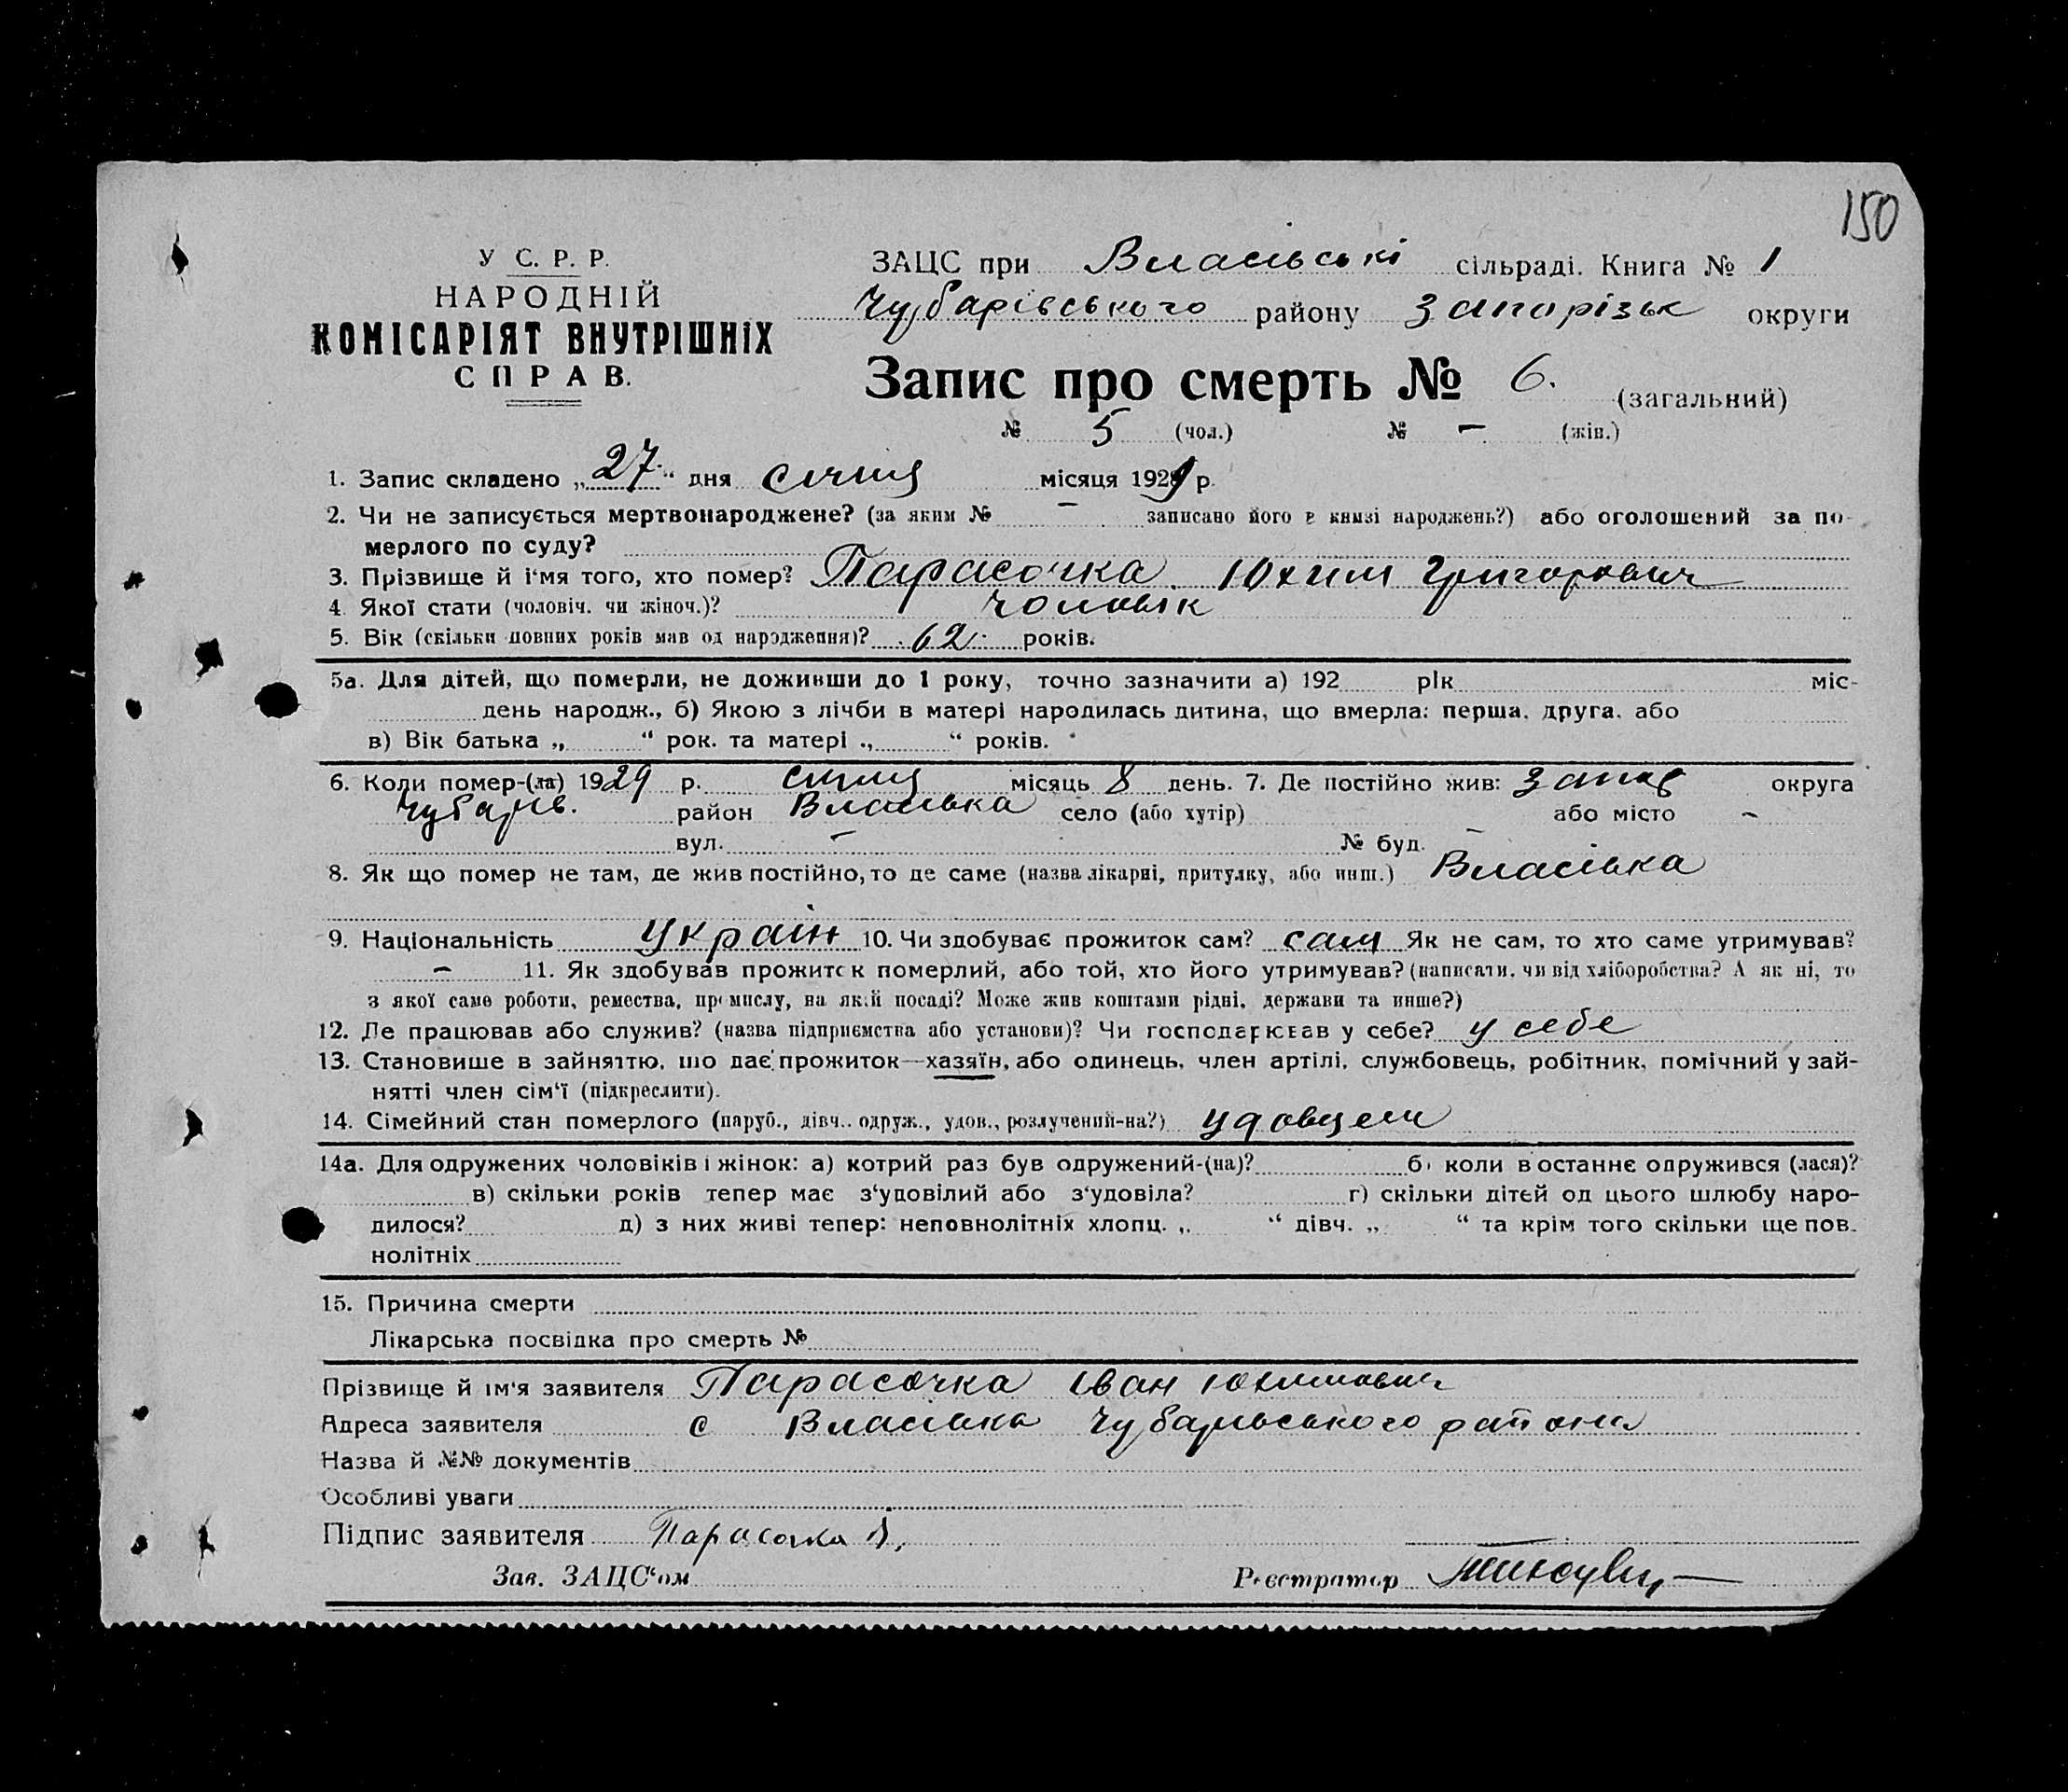 150
У С. Р. Р.
НАРОДНІЙ
КОМІСАРІЯТ ВНУТРІШНІХ
СПРАВ.
ЗАЦС при Власівські сільраді. Книга № 1
Чубарівського району Запорізьк округи
Запис про смерть № 6. (загальний)
№ 5 (чол.) № – (жін.)
1. Запис складено „27“ дня січня місяця 1929 р.
2. Чи не записується мертвонароджене? (за яким № – записано його в книзі народжень?) або оголошений за по-
мерлого по суду?
3. Прізвище й ім'я того, хто помер? Парасочка Юхим Григорович
4. Якої стати (чоловіч. чи жіноч.)? чоловік
5. Вік (скільки повних років мав од народження)? 62 років.
5а. Для дітей, що померли, не доживши до 1 року, точно зазначити а) 192 рік міс-
день народж., б) Якою з лічби в матері народилась дитина, що вмерла: перша, друга, або
в) Вік батька „ “ рок. та матері „ “ років.
6. Коли помер-(ла) 1929 р. січня місяць 8 день. 7. Де постійно жив: Запор округа
Чубарів. район Власівка село (або хутір) або місто –
вул. – № буд. –
8. Як що помер не там, де жив постійно, то де саме (назва лікарні, притулку, або инш.) Власівка
9. Національність україн 10. Чи здобуває прожиток сам? сам Як не сам, то хто саме утримував?
– 11. Як здобував прожиток померлий, або той, хто його утримував? (написати, чи від хліборобства? А як ні, то
з якої саме роботи, ремества, промислу, на якій посаді? Може жив коштами рідні, держави та инше?)
12. Де працював або служив? (назва підприємства або установи)? Чи господарював у себе? у себе
13. Становише в зайняттю, що дає прожиток—хазяїн, або одинець, член артілі, службовець, робітник, помічний у зай-
нятті член сім'ї (підкреслити).
14. Сімейний стан померлого (паруб., дівч.. одруж., удов., розлучений-на?) удовцем
14а. Для одружених чоловіків і жінок: а) котрий раз був одружений-(на)? б) коли в останнє одружився (лася)?
в) скільки років тепер має з'удовілий або з'удовіла? г) скільки дітей од цього шлюбу наро-
дилося? д) з них живі тепер: неповнолітніх хлопц. „ “ дівч. „ “ та крім того скільки ще пов.
нолітніх
15. Причина смерти
Лікарська посвідка про смерть №
Прізвище й ім'я заявителя Парасочка Іван Юхимович
Адреса заявителя с Власівка Чубарівського району
Назва й №№ документів
Особливі уваги
Підпис заявителя Парасочка І.
Зав. ЗАЦС'ом Реєстратор